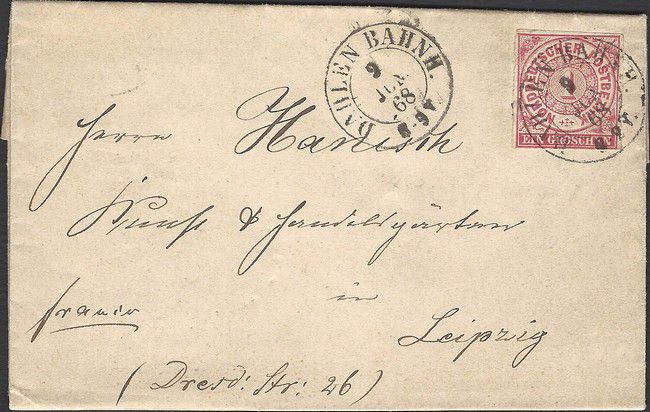 DAHLEN BAHNH.
9
68
NORDDEUTSCHER POSTBEZIRK
1
EIN GROSCHEN
Herrn Hanisch
Kunst & Handelsgärtner
in
franco
Leipzig
(Dresd: Str: 26)